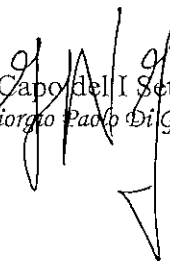 Capo del I Set
iorgio Paolo Di G